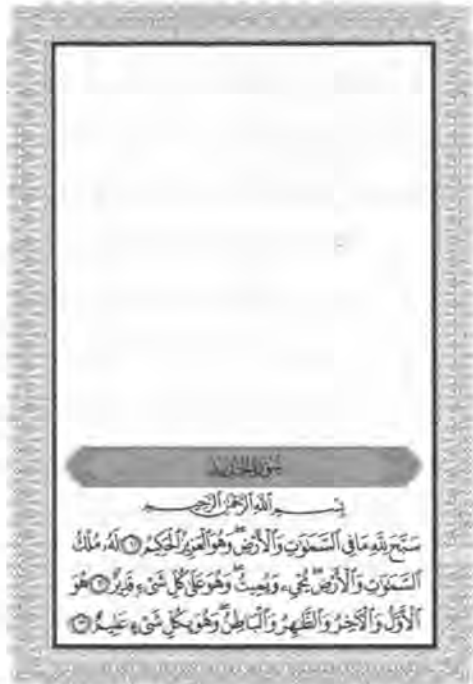 سُورَةُ الحَدِيدِ
بِسْمِ ٱللَّهِ ٱلرَّحْمَٰنِ ٱلرَّحِيمِ
سَبَّحَ لِلَّهِ مَا فِي ٱلسَّمَٰوَٰتِ وَٱلْأَرْضِ ۖ وَهُوَ ٱلْعَزِيزُ ٱلْحَكِيمُ ۝١ لَهُۥ مُلْكُ
ٱلسَّمَٰوَٰتِ وَٱلْأَرْضِ ۖ يُحْيِۦ وَيُمِيتُ ۖ وَهُوَ عَلَىٰ كُلِّ شَىْءٍ قَدِيرٌ ۝٢ هُوَ
ٱلْأَوَّلُ وَٱلْـَٔاخِرُ وَٱلظَّٰهِرُ وَٱلْبَاطِنُ ۖ وَهُوَ بِكُلِّ شَىْءٍ عَلِيمٌ ۝٣